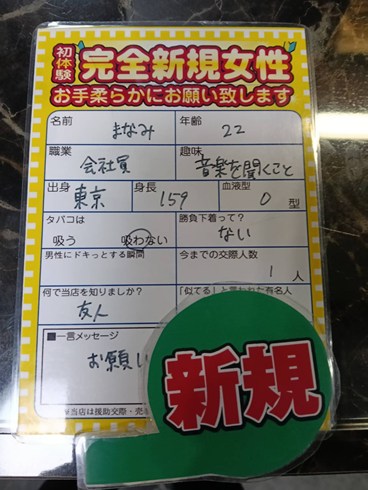 初体験
完全新規女性
お手柔らかにお願い致します
名前 まなみ 年齢 22
職業 会社員 趣味 音楽を聞くこと
出身 東京 身長 159 血液型 O 型
タバコは 勝負下着って?
吸う 吸わない ない
男性にドキっとする瞬間 今までの交際人数
1 人
何で当店を知りましたか? 「似てる」と言われた有名人
友人
■一言メッセージ
お願いし
当店は援助交際・売
新規